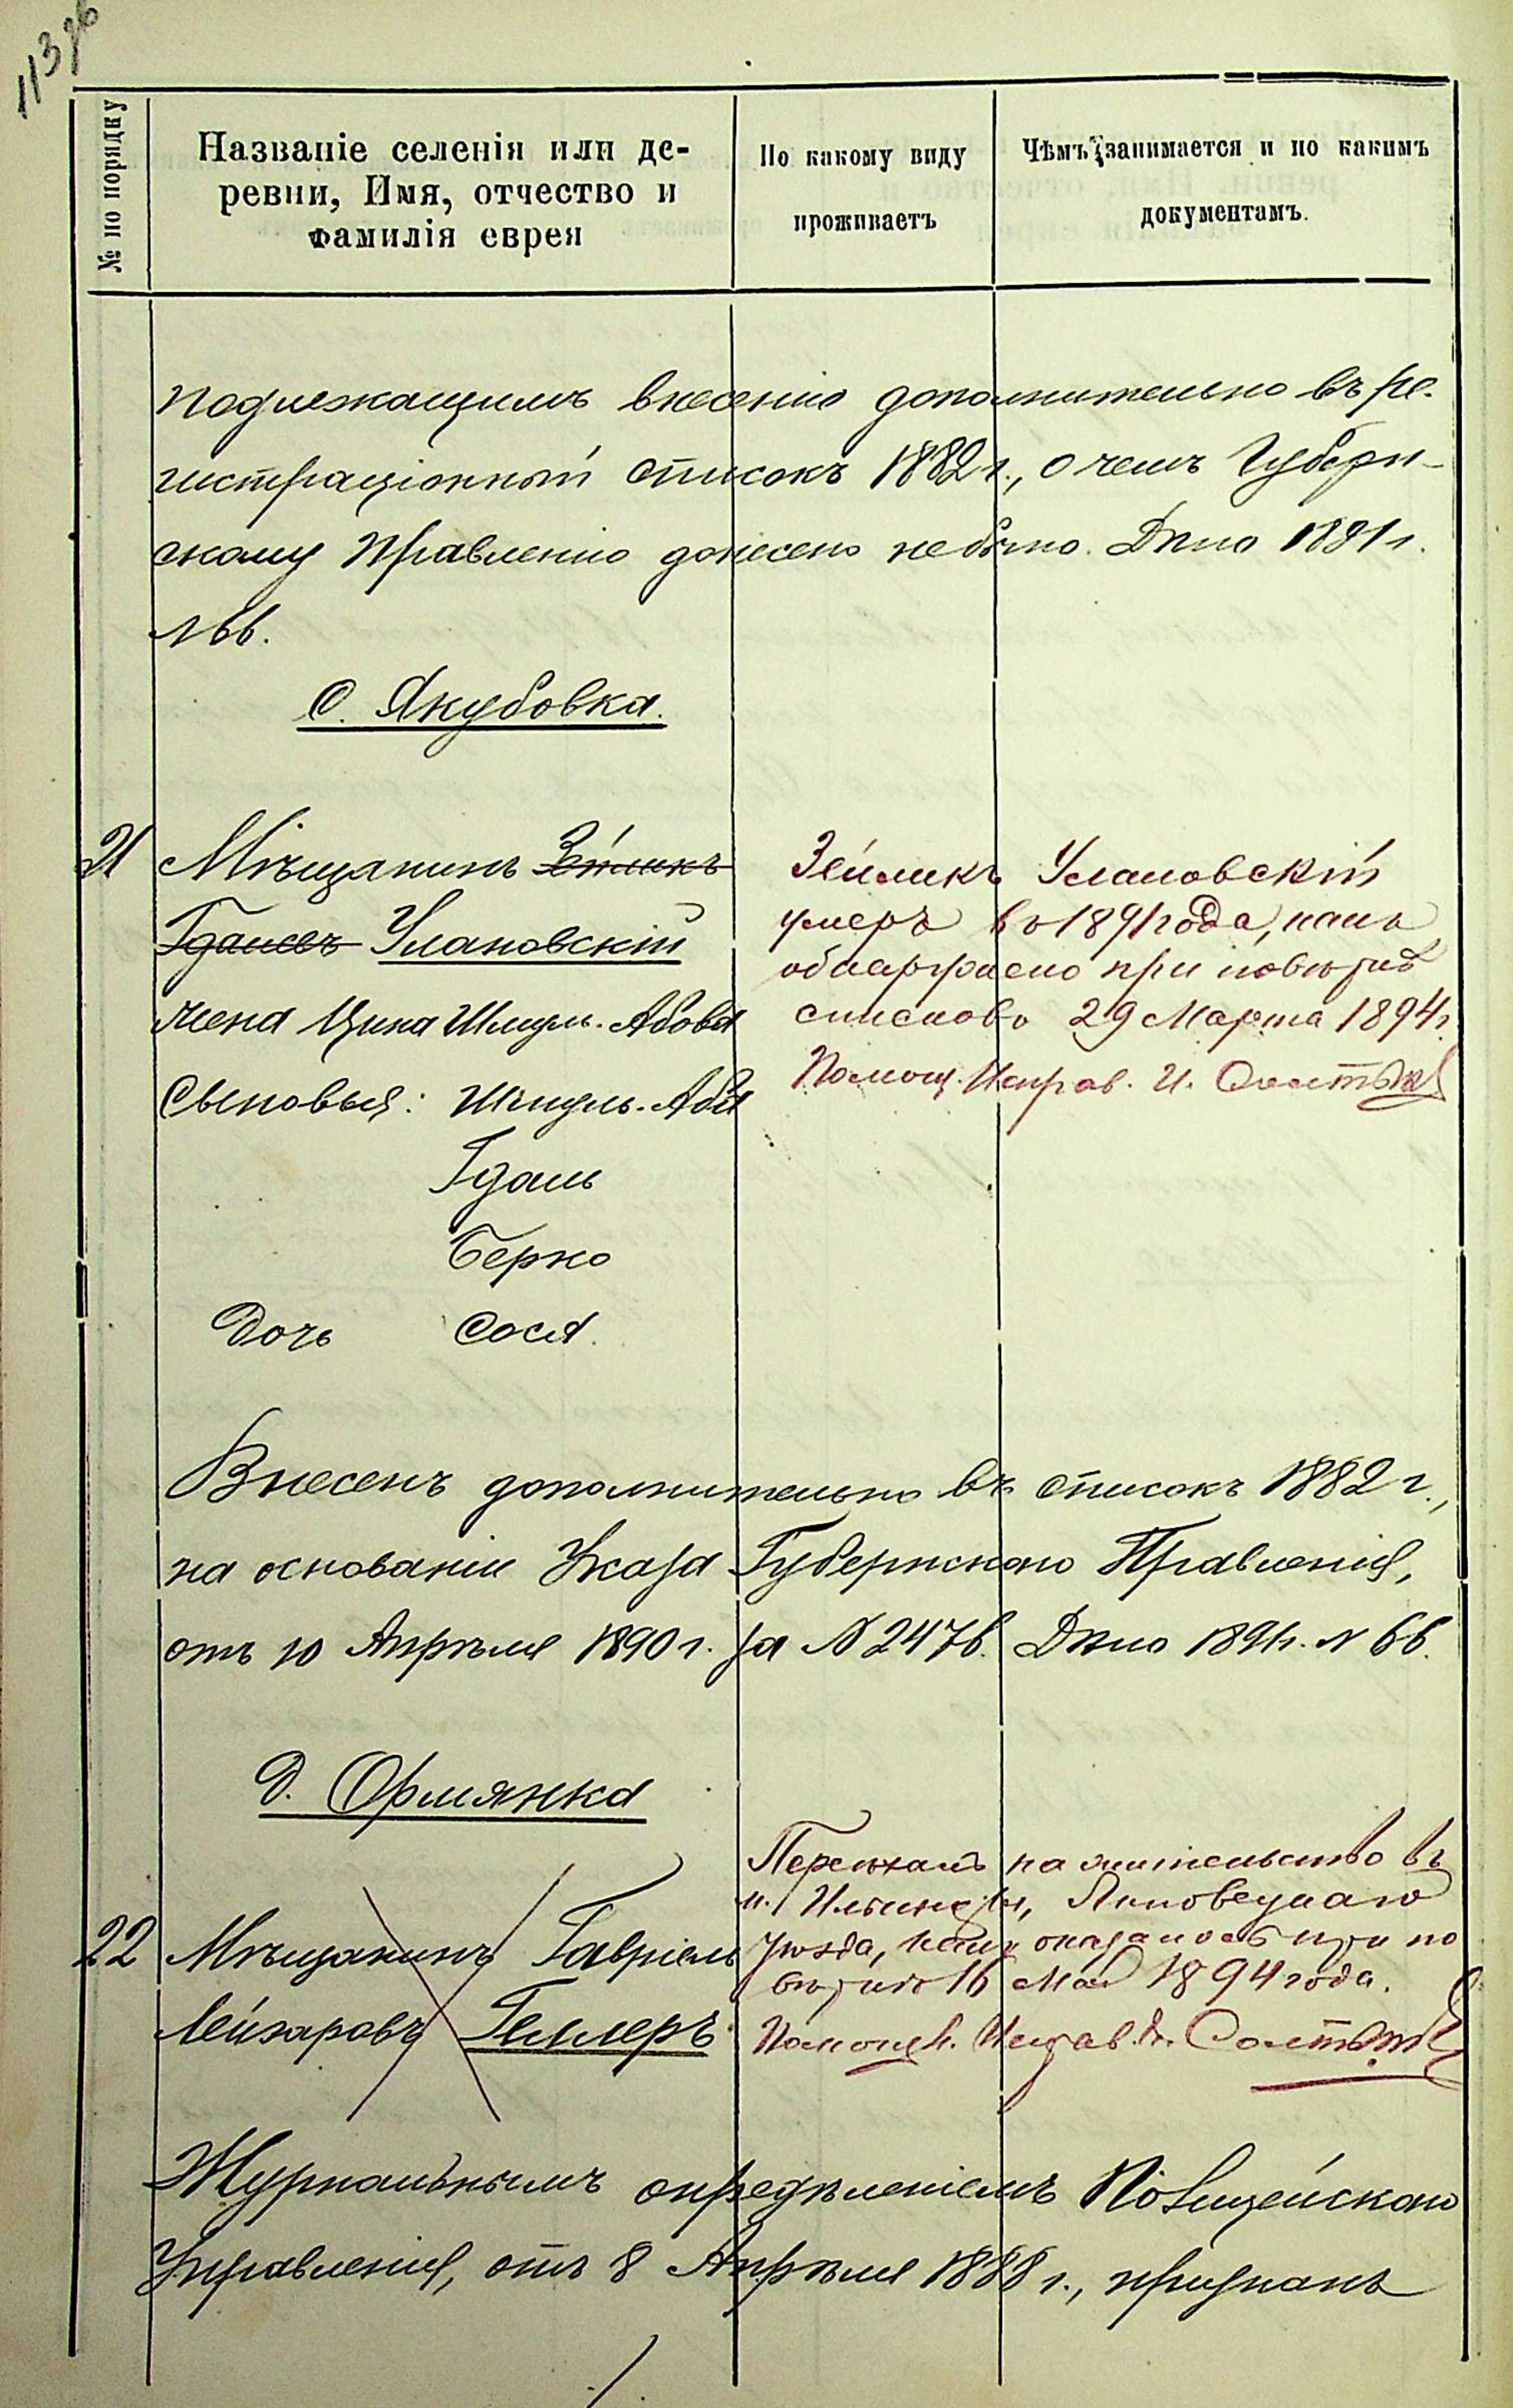 113 об
№ по порядку
Названіе селенія или де-
ревни, Имя, отчество и
фамилія еврея
По какому виду
проживаетъ
Чѣмъ занимается и по какимъ
документамъ.
подлежащимъ внесенію дополнительно въ ре-
гистраціонный списокъ 1882 г., о чемъ Губерн-
скому Правленію донесено не было. Дѣло 1891 г.
№ 66.
С. Якубовка.
21 Мѣщанинъ Зейликъ
Гдалевъ Улановскій
жена Цина Шмуль-Абова
Сыновья: Шмуль-Аба
Гдаль
Берко
Дочь Сося.
Зейликъ Улановскій
умеръ въ 1891 года, какъ
обнаружено при повѣркѣ
списковъ 29 Марта 1894 г.
Помощ. Исправ. И.
Внесенъ дополнительно въ списокъ 1882 г.,
на основаніи Указа Губернскаго Правленія,
отъ 10 Апрѣля 1890 г. за № 2476. Дѣло 1891 г. № 66.
Д. Ормянка
22 Мѣщанинъ Гавріель
Лейзаровъ Геллеръ
Переѣхалъ на жительство въ
м. Ильинцы, Липовецкаго
уѣзда, какъ оказалось при по
вѣркѣ 16 Мая 1894 года.
Помощн. Исправ.
Журнальнымъ опредѣленіемъ Полицейскаго
Управленія, отъ 8 Апрѣля 1888 г., признанъ